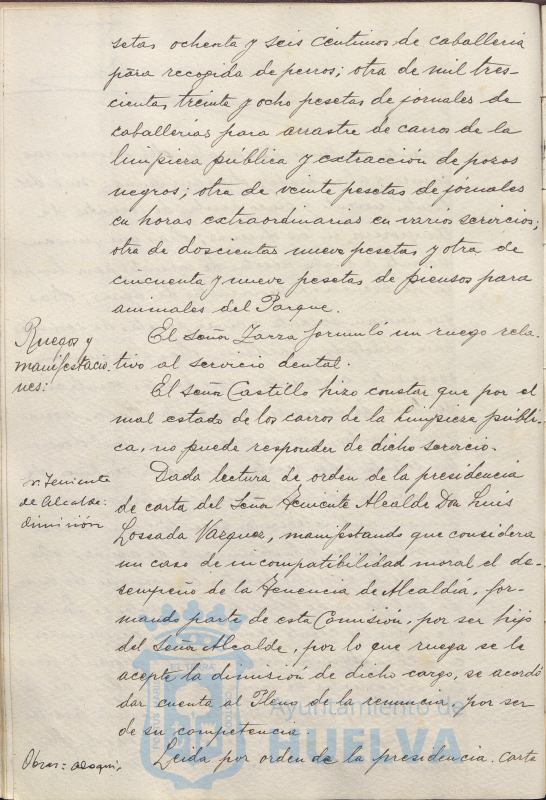 setas ochenta y seis céntimos de caballeria
para recogida de perros; otra de mil tres-
cientas treinta y ocho pesetas de jornales de
caballerias para arrastre de carros de la
limpieza pública y extracción de pozos
negros; otra de veinte pesetas de jornales
en horas extraordinarias en varios servicios;
otra de doscientas nueve pesetas y otra de
cincuenta y nueve pesetas de piensos para
animales del Parque.
Ruegos y
manifestacio
nes:
El señor Zarza formuló un ruego rela-
tivo al servicio dental.
El señor Castillo hizo constar que por el
mal estado de los carros de la limpieza públi-
ca, no puede responder de dicho servicio.
Teniente
de Alcalde:
dimisión
Dada lectura de orden de la presidencia
de carta del señor Teniente Alcalde Don Luis
Lossada Vazquez, manifestando que considera
un caso de incompatibilidad moral el de-
sempeño de la Tenencia de Alcaldía, for-
mando parte de esta Comisión, por ser hijo
del señor Alcalde, por lo que ruega se le
acepte la dimisión de dicho cargo, se acordó
dar cuenta al Pleno de la renuncia, por ser
de su competencia.
Obras: adoqui,
Leida por orden de la presidencia carta
Ayuntamiento de
HUELVA